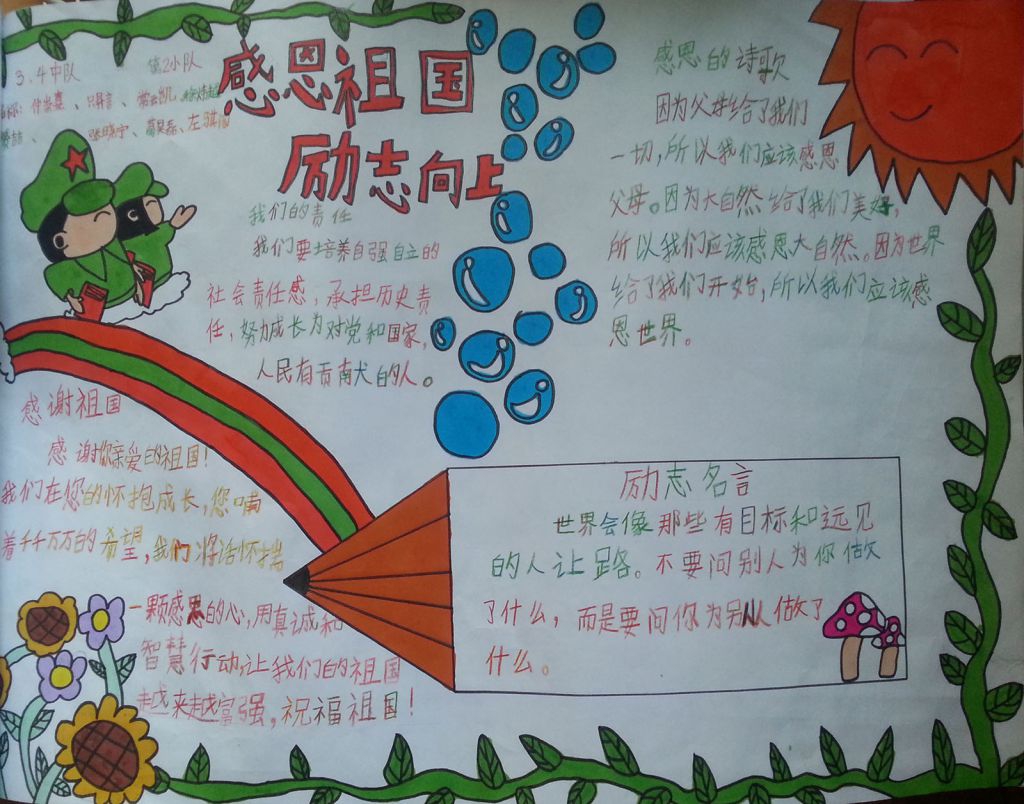 3.4中队 第2小队
感恩祖国
励志向上
我们的责任
我们要培养自强自立的
社会责任感，承担历史责
任，努力成长为对党和国家，
人民有贡南犬的人。
感恩的诗歌
因为父母给了我们
一切，所以我们应该感恩
父母。因为大自然给了我们美好，
所以我们应该感恩大自然。因为世界
给了我们开始，所以我们应该感
恩世界。
感谢祖国
感谢你亲爱的祖国！
我们在您的怀抱成长，您哺
着千千万万的希望，我们将话怀揣
一颗感恩的心，用真诚和
智慧行动，让我们的祖国
越来越富强，祝福祖国！
励志名言
世界会像那些有目标和远见
的人让路。不要问别人为你做
了什么，而是要问你为别人做了
什么。